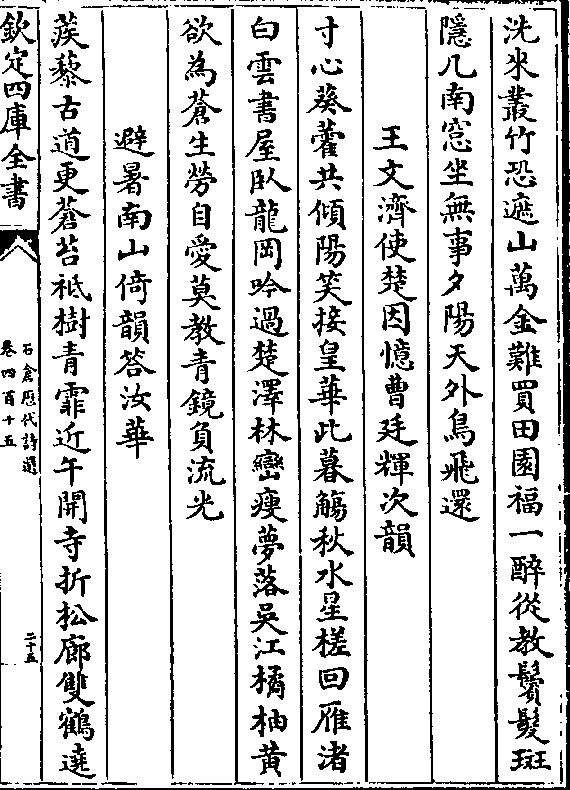 洗來叢竹恐遮山萬金難買田園福一醉從教鬢髮斑
隱几南窓坐無事夕陽天外鳥飛還
王文濟使楚因憶曹廷輝次韻
寸心葵藿共傾陽笑接皇華此暮觴秋水星槎回雁渚
白雲書屋臥龍岡吟過楚澤林巒瘦夢落吳江橘柚黃
欲為蒼生勞自愛莫教青鏡負流光
避暑南山倚韻答汝華
蒺藜古道更蒼苔祗樹青霏近午開寺折松廊雙鶴遶
欽定四庫全書
石倉歷代詩選
卷四百十五
二十五